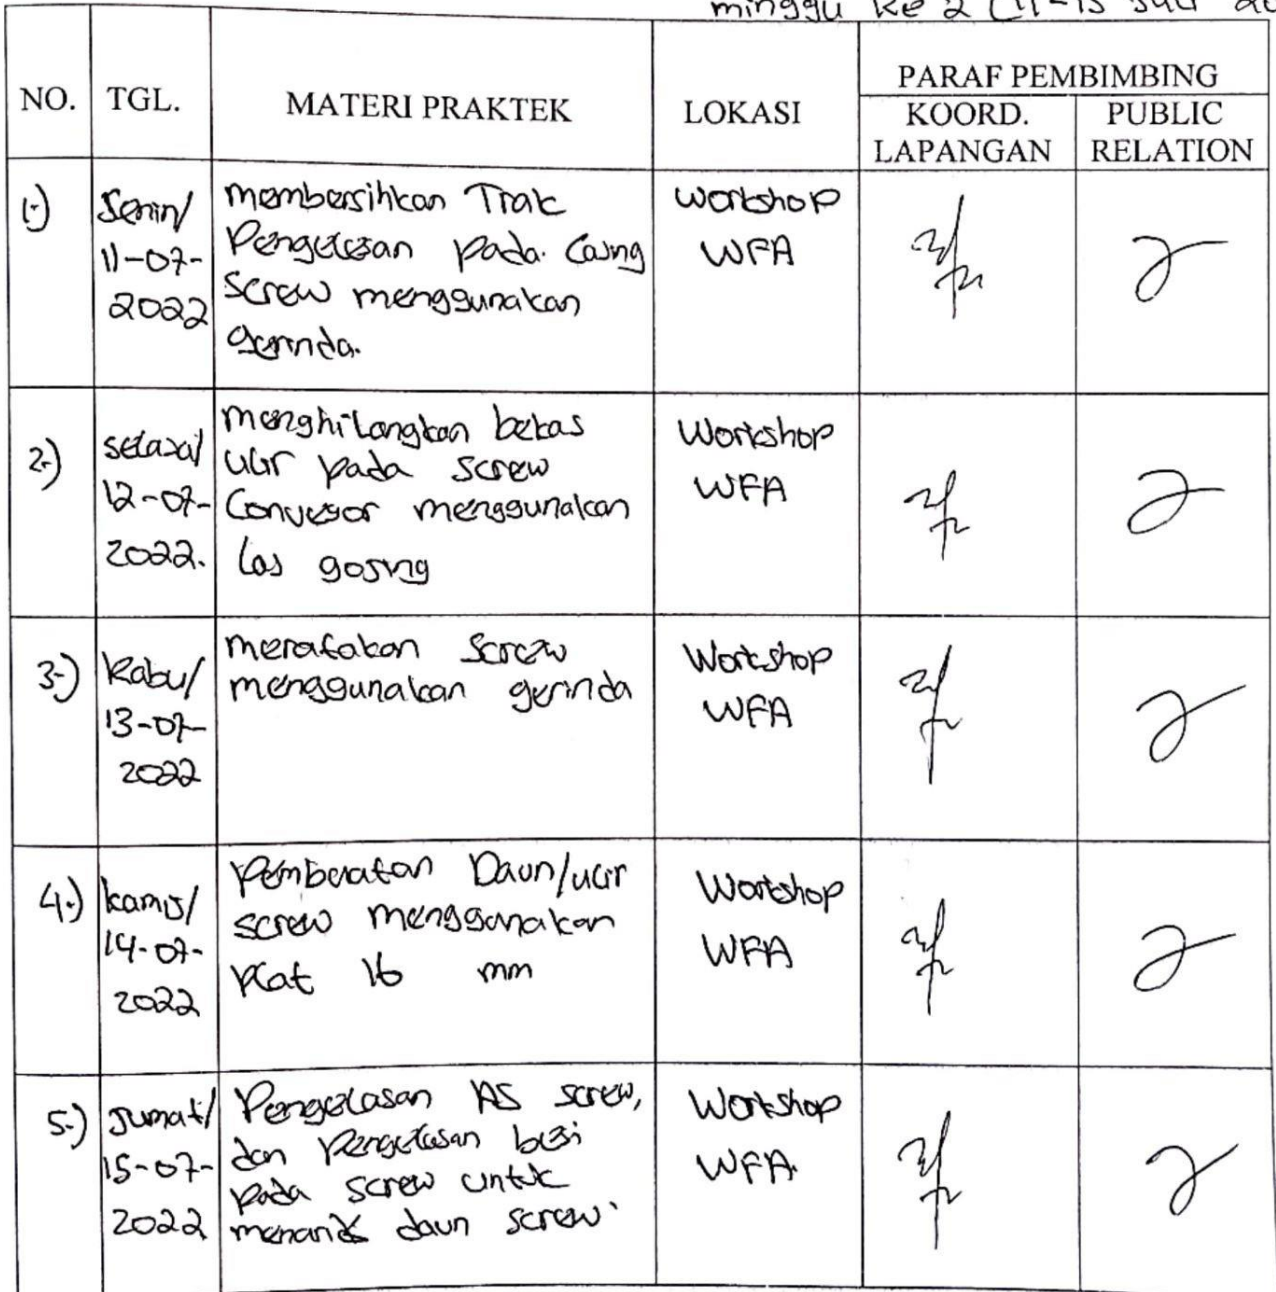 minggu ke 2 (11-15 Juli 20
PARAF PEMBIMBING
NO. TGL. MATERI PRAKTEK LOKASI KOORD. LAPANGAN PUBLIC RELATION
1.) Senin/ 11-07-2022
membersihkan Trak
Pengelasan pada Casing
Screw menggunakan
gerinda.
Workshop
WFA
2.) selasa/ 12-07-2022.
menghilangkan bekas
ulir pada screw
Conveyor menggunakan
las gosing
Workshop
WFA
3.) Rabu/ 13-07-2022
meratakan Screw
menggunakan gerinda
Workshop
WFA
4.) kamis/ 14-07-2022
Pembuatan Daun/ulir
screw menggunakan
Plat 16 mm
Workshop
WFA
5.) Jumat/ 15-07-2022
Pengelasan AS screw,
dan Pengelasan besi
pada screw untuk
menarik daun screw.
Workshop
WFA.